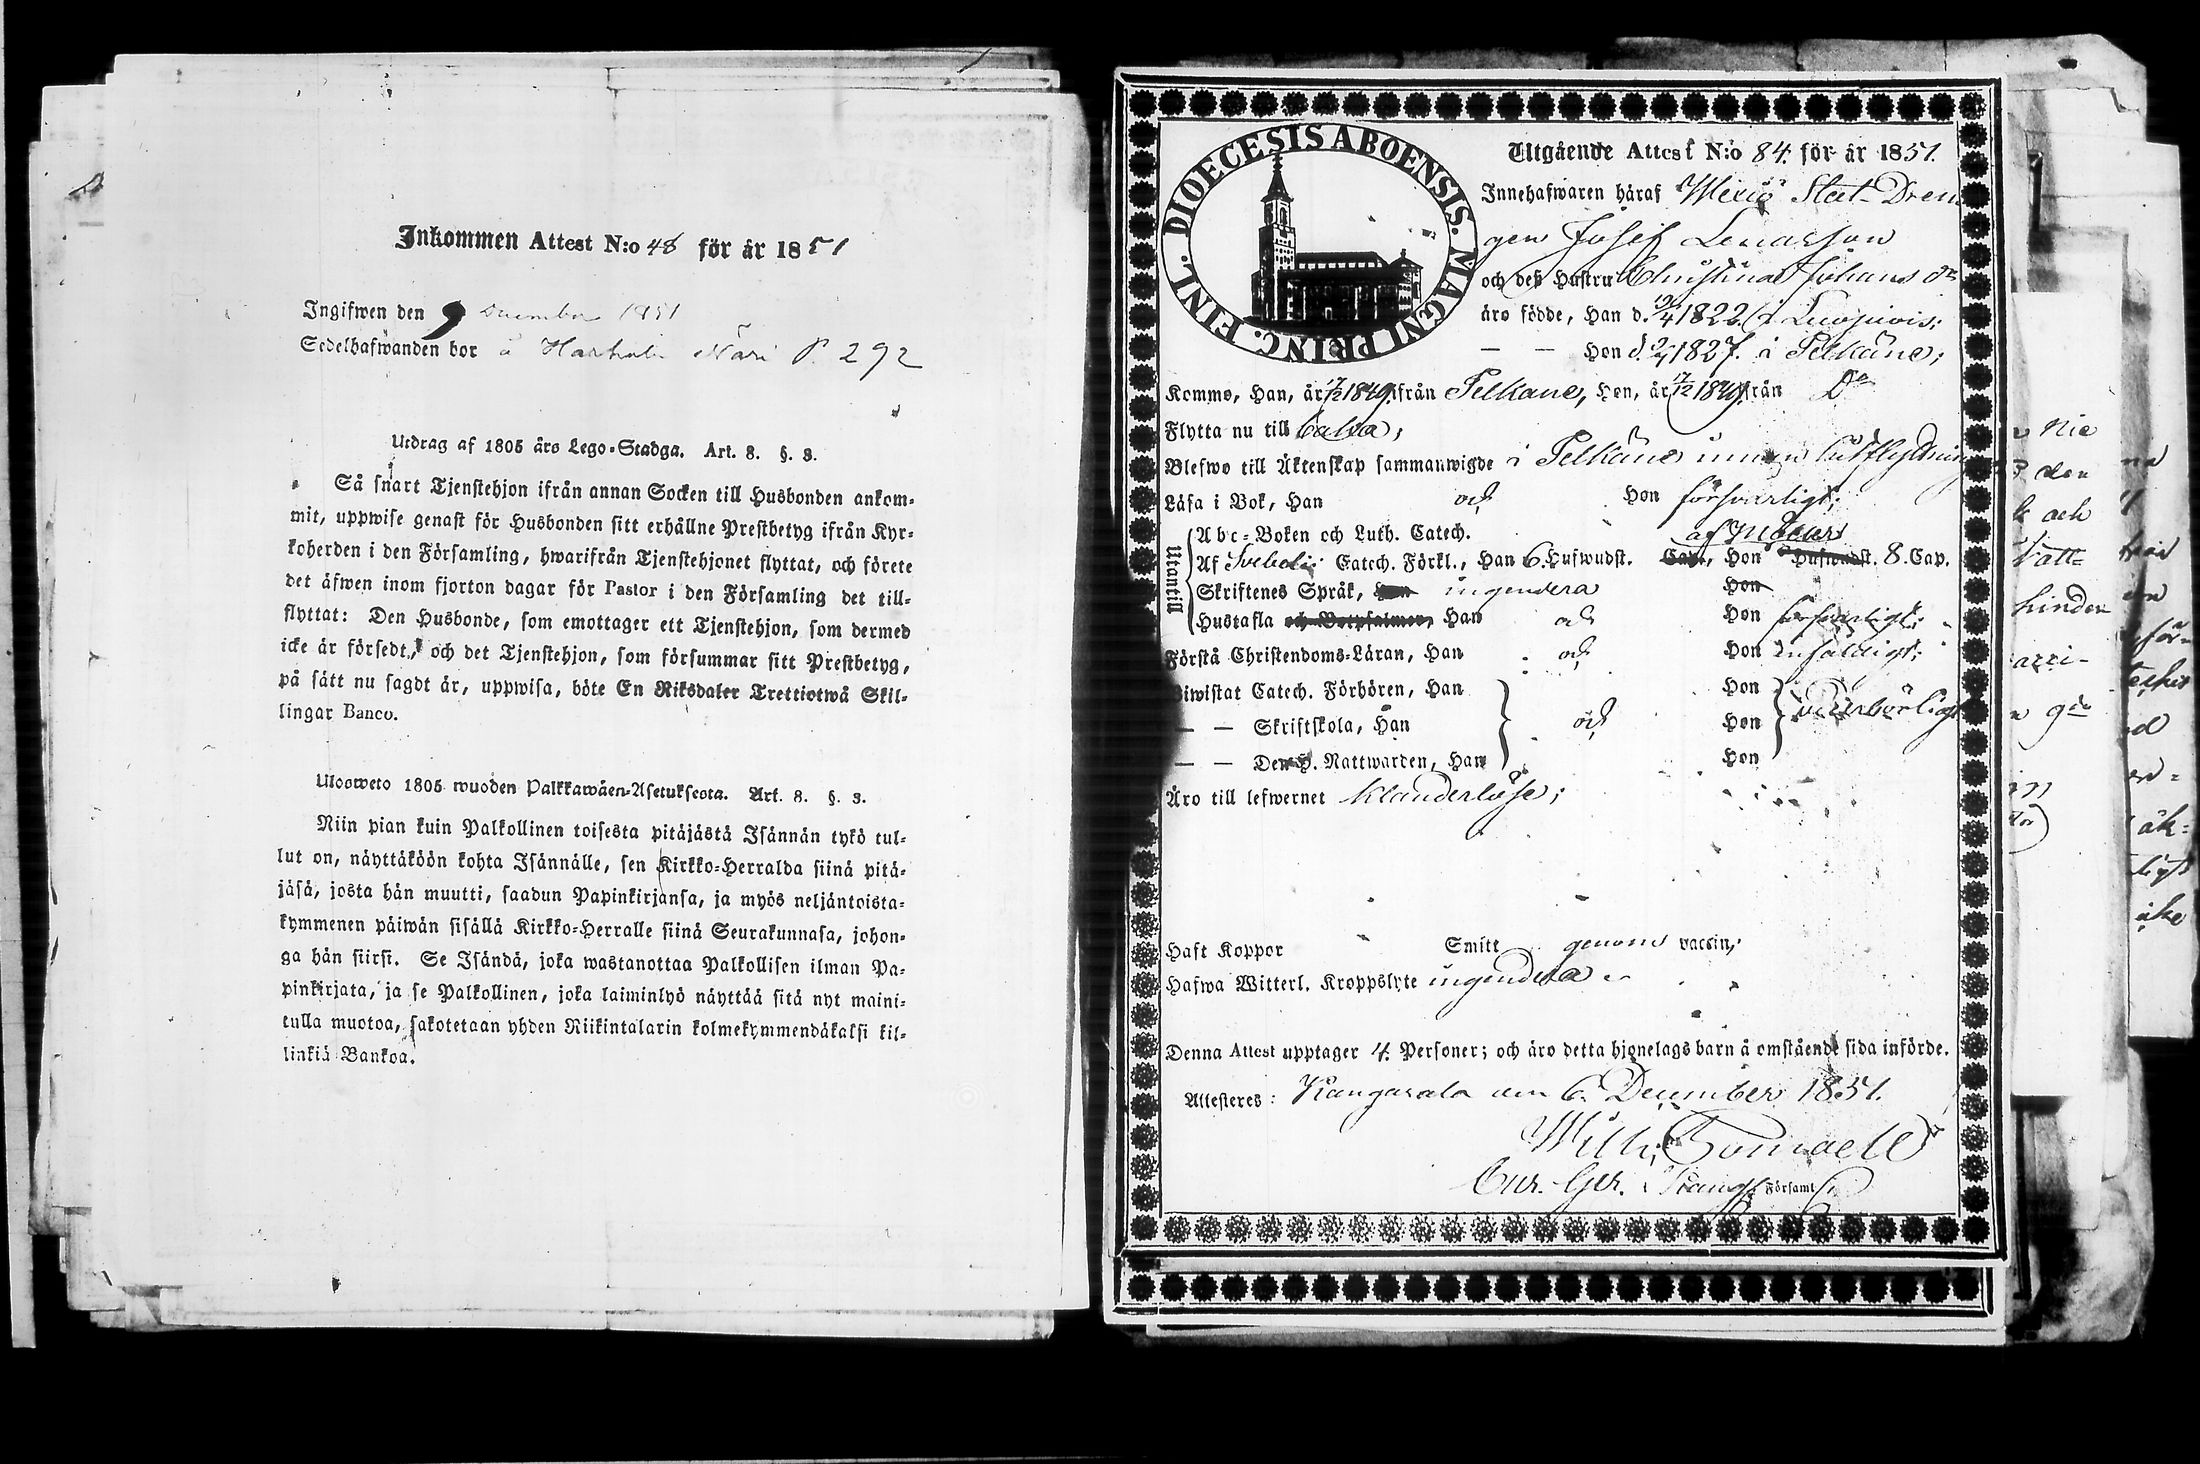 Inkommen Attest N:o 48 för år 1851
Ingifwen den 9 December 1851
Sedelhafwanden bor å Harhala Näri P. 292
Utdrag af 1805 års Lego-Stadga. Art. 8. §. 3.
Så snart Tjenstehjon ifrån annan Socken till Husbonden ankom-
mit, uppwise genast för Husbonden sitt erhållne Prestbetyg ifrån Kyr-
koherden i den Församling, hwarifrån Tjenstehjonet flyttat, och förete
det äfwen inom fjorton dagar för Pastor i den Församling det till-
flyttat: Den Husbonde, som emottager ett Tjenstehjon, som dermed
icke är försedt, och det Tjenstehjon, som försummar sitt Prestbetyg,
på sätt nu sagdt är, uppwisa, böte En Riksdaler Trettiotwå Skil-
lingar Banco.
Ulosweto 1805 wuoden Palkkawäen-Asetuksesta. Art. 8. §. 3.
Niin pian kuin Palkollinen toisesta pitäjästä Isännän tykö tul-
lut on, näyttäköön kohta Isännälle, sen Kirkko-Herralda siinä pitä-
jäsä, josta hän muutti, saadun Papinkirjansa, ja myös neljäntoista-
kymmenen päiwän sisällä Kirkko-Herralle siinä Seurakunnasa, johon-
ga hän siirsi. Se Isändä, joka wastanottaa Palkollisen ilman Pa-
pinkirjata, ja se Palkollinen, joka laiminlyö näyttää sitä nyt maini-
tulla muotoa, sakotetaan yhden Riikintalarin kolmekymmendäkaksi kil-
linkiä Bankoa.
DIOECESIS ABOENSIS. MAGNI PRINC. FINL.
Utgående Attest N:o 84. för år 1851.
Innehafwaren häraf Stat-Dren
gen Josef
och deß Hustru Christina Johans dr
äro födde, Han d. 19/4 1822. i
— — Hon d. 1827. i Pelkäne;
Kommo, Han, år 17/12 1849. från Pelkäne, Hon, år 17/12 1849 från Do
Flytta nu till
Blefwo till Äktenskap sammanwigde i Pelkäne innan utflyttning
Läsa i Bok, Han och Hon försvarligt;
Utantill
Abc-Boken och Luth. Catech.
af Möllers
Af Svebelii Catech. Förkl., Han 6. Hufwudst. Cap., Hon Hufwudst. 8. Cap.
Skriftenes Språk, Han ingendera Hon
Hustafla och Botpsalmer, Han och Hon försvarligt;
Förstå Christendoms-Läran, Han och Hon enfaldigt;
Biwistat Catech. Förhören, Han Hon
— — Skriftskola, Han och Hon vederbörligt
— — Den H. Nattwarden, Han Hon
Äro till lefwernet klanderlöse;
Haft Koppor Smitt genom vaccin;
Hafwa Witterl. Kroppslyte ingendera
Denna Attest upptager 4. Personer; och äro detta hjonelags barn å omstående sida införde.
Attesteres: Kangasala den 6. December 1851.
Wilh.
Cur. Ger. i Kang. Församl